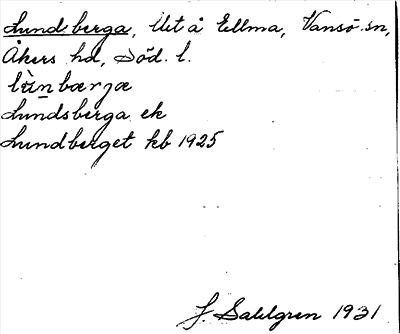 Lundberga, Ut å Ellma, Vansö sn,
Åkers hd, Söd. l.
lùnbærjæ
Lundsberga ek
Lundberget kb 1925
J. Sahlgren 1931